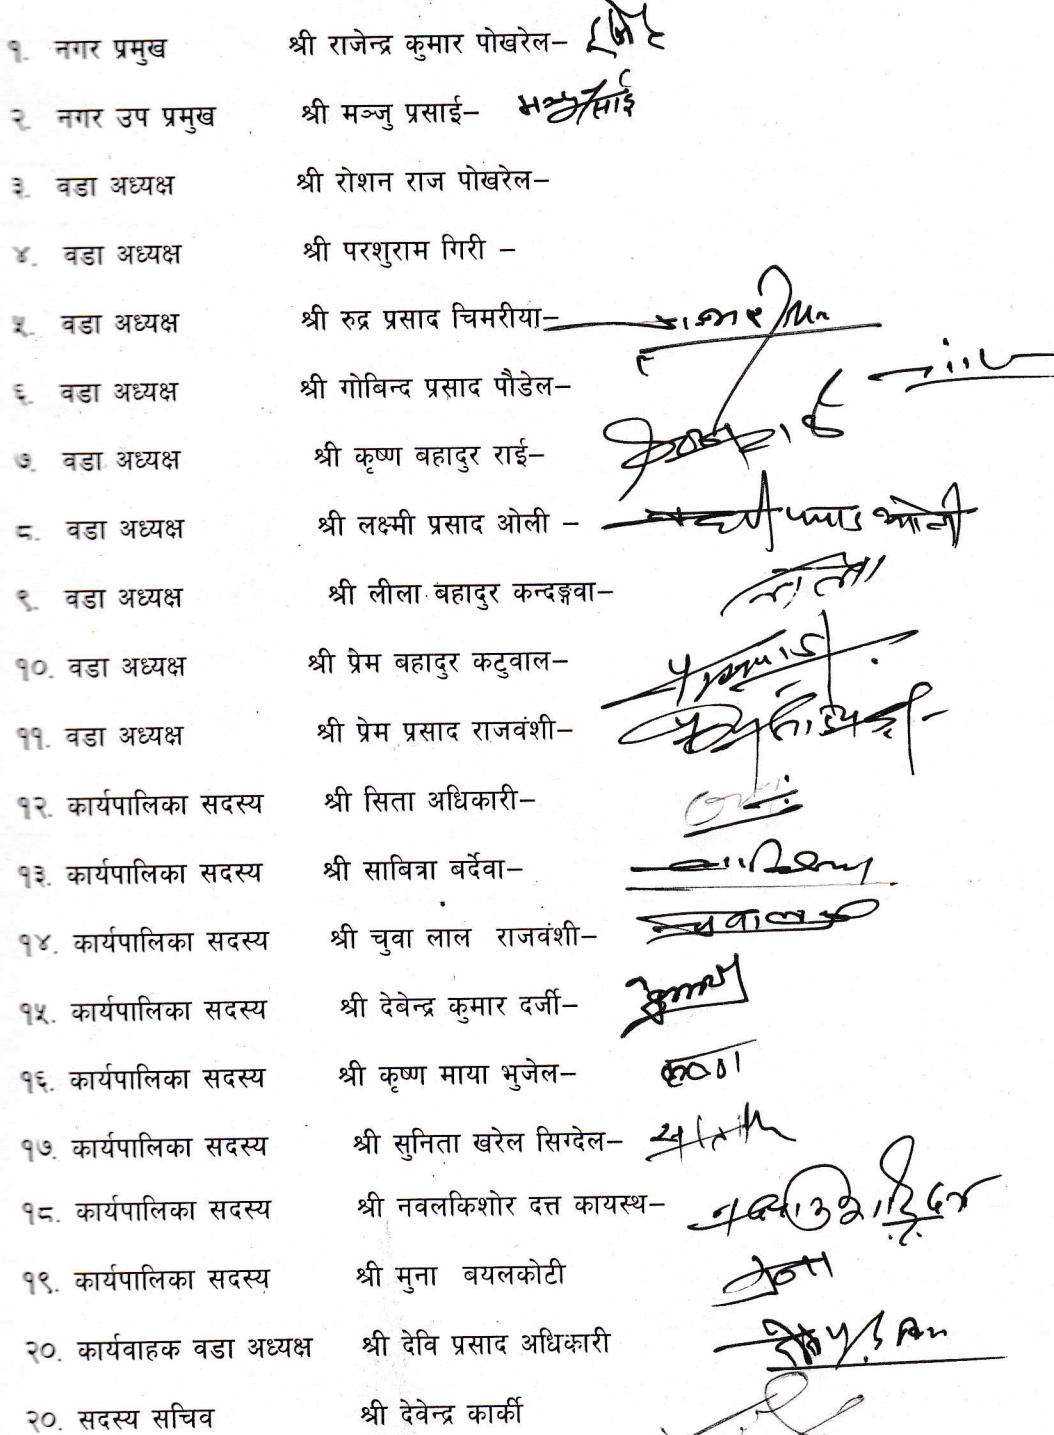 १. नगर प्रमुख श्री राजेन्द्र कुमार पोखरेल–
२. नगर उप प्रमुख श्री मञ्जु प्रसाई– मञ्जु प्रसाई
३. वडा अध्यक्ष श्री रोशन राज पोखरेल–
४. वडा अध्यक्ष श्री परशुराम गिरी –
५. वडा अध्यक्ष श्री रुद्र प्रसाद चिमरीया–
६. वडा अध्यक्ष श्री गोबिन्द प्रसाद पौडेल–
७. वडा अध्यक्ष श्री कृष्ण बहादुर राई–
८. वडा अध्यक्ष श्री लक्ष्मी प्रसाद ओली –
९. वडा अध्यक्ष श्री लीला बहादुर कन्दङ्गवा–
१०. वडा अध्यक्ष श्री प्रेम बहादुर कटुवाल–
११. वडा अध्यक्ष श्री प्रेम प्रसाद राजवंशी–
१२. कार्यपालिका सदस्य श्री सिता अधिकारी–
१३. कार्यपालिका सदस्य श्री साबित्रा बर्देवा–
१४. कार्यपालिका सदस्य श्री चुवा लाल राजवंशी–
१५. कार्यपालिका सदस्य श्री देबेन्द्र कुमार दर्जी–
१६. कार्यपालिका सदस्य श्री कृष्ण माया भुजेल–
१७. कार्यपालिका सदस्य श्री सुनिता खरेल सिग्देल–
१८. कार्यपालिका सदस्य श्री नवलकिशोर दत्त कायस्थ–
१९. कार्यपालिका सदस्य श्री मुना बयलकोटी
२०. कार्यवाहक वडा अध्यक्ष श्री देवि प्रसाद अधिकारी
२०. सदस्य सचिव श्री देवेन्द्र कार्की